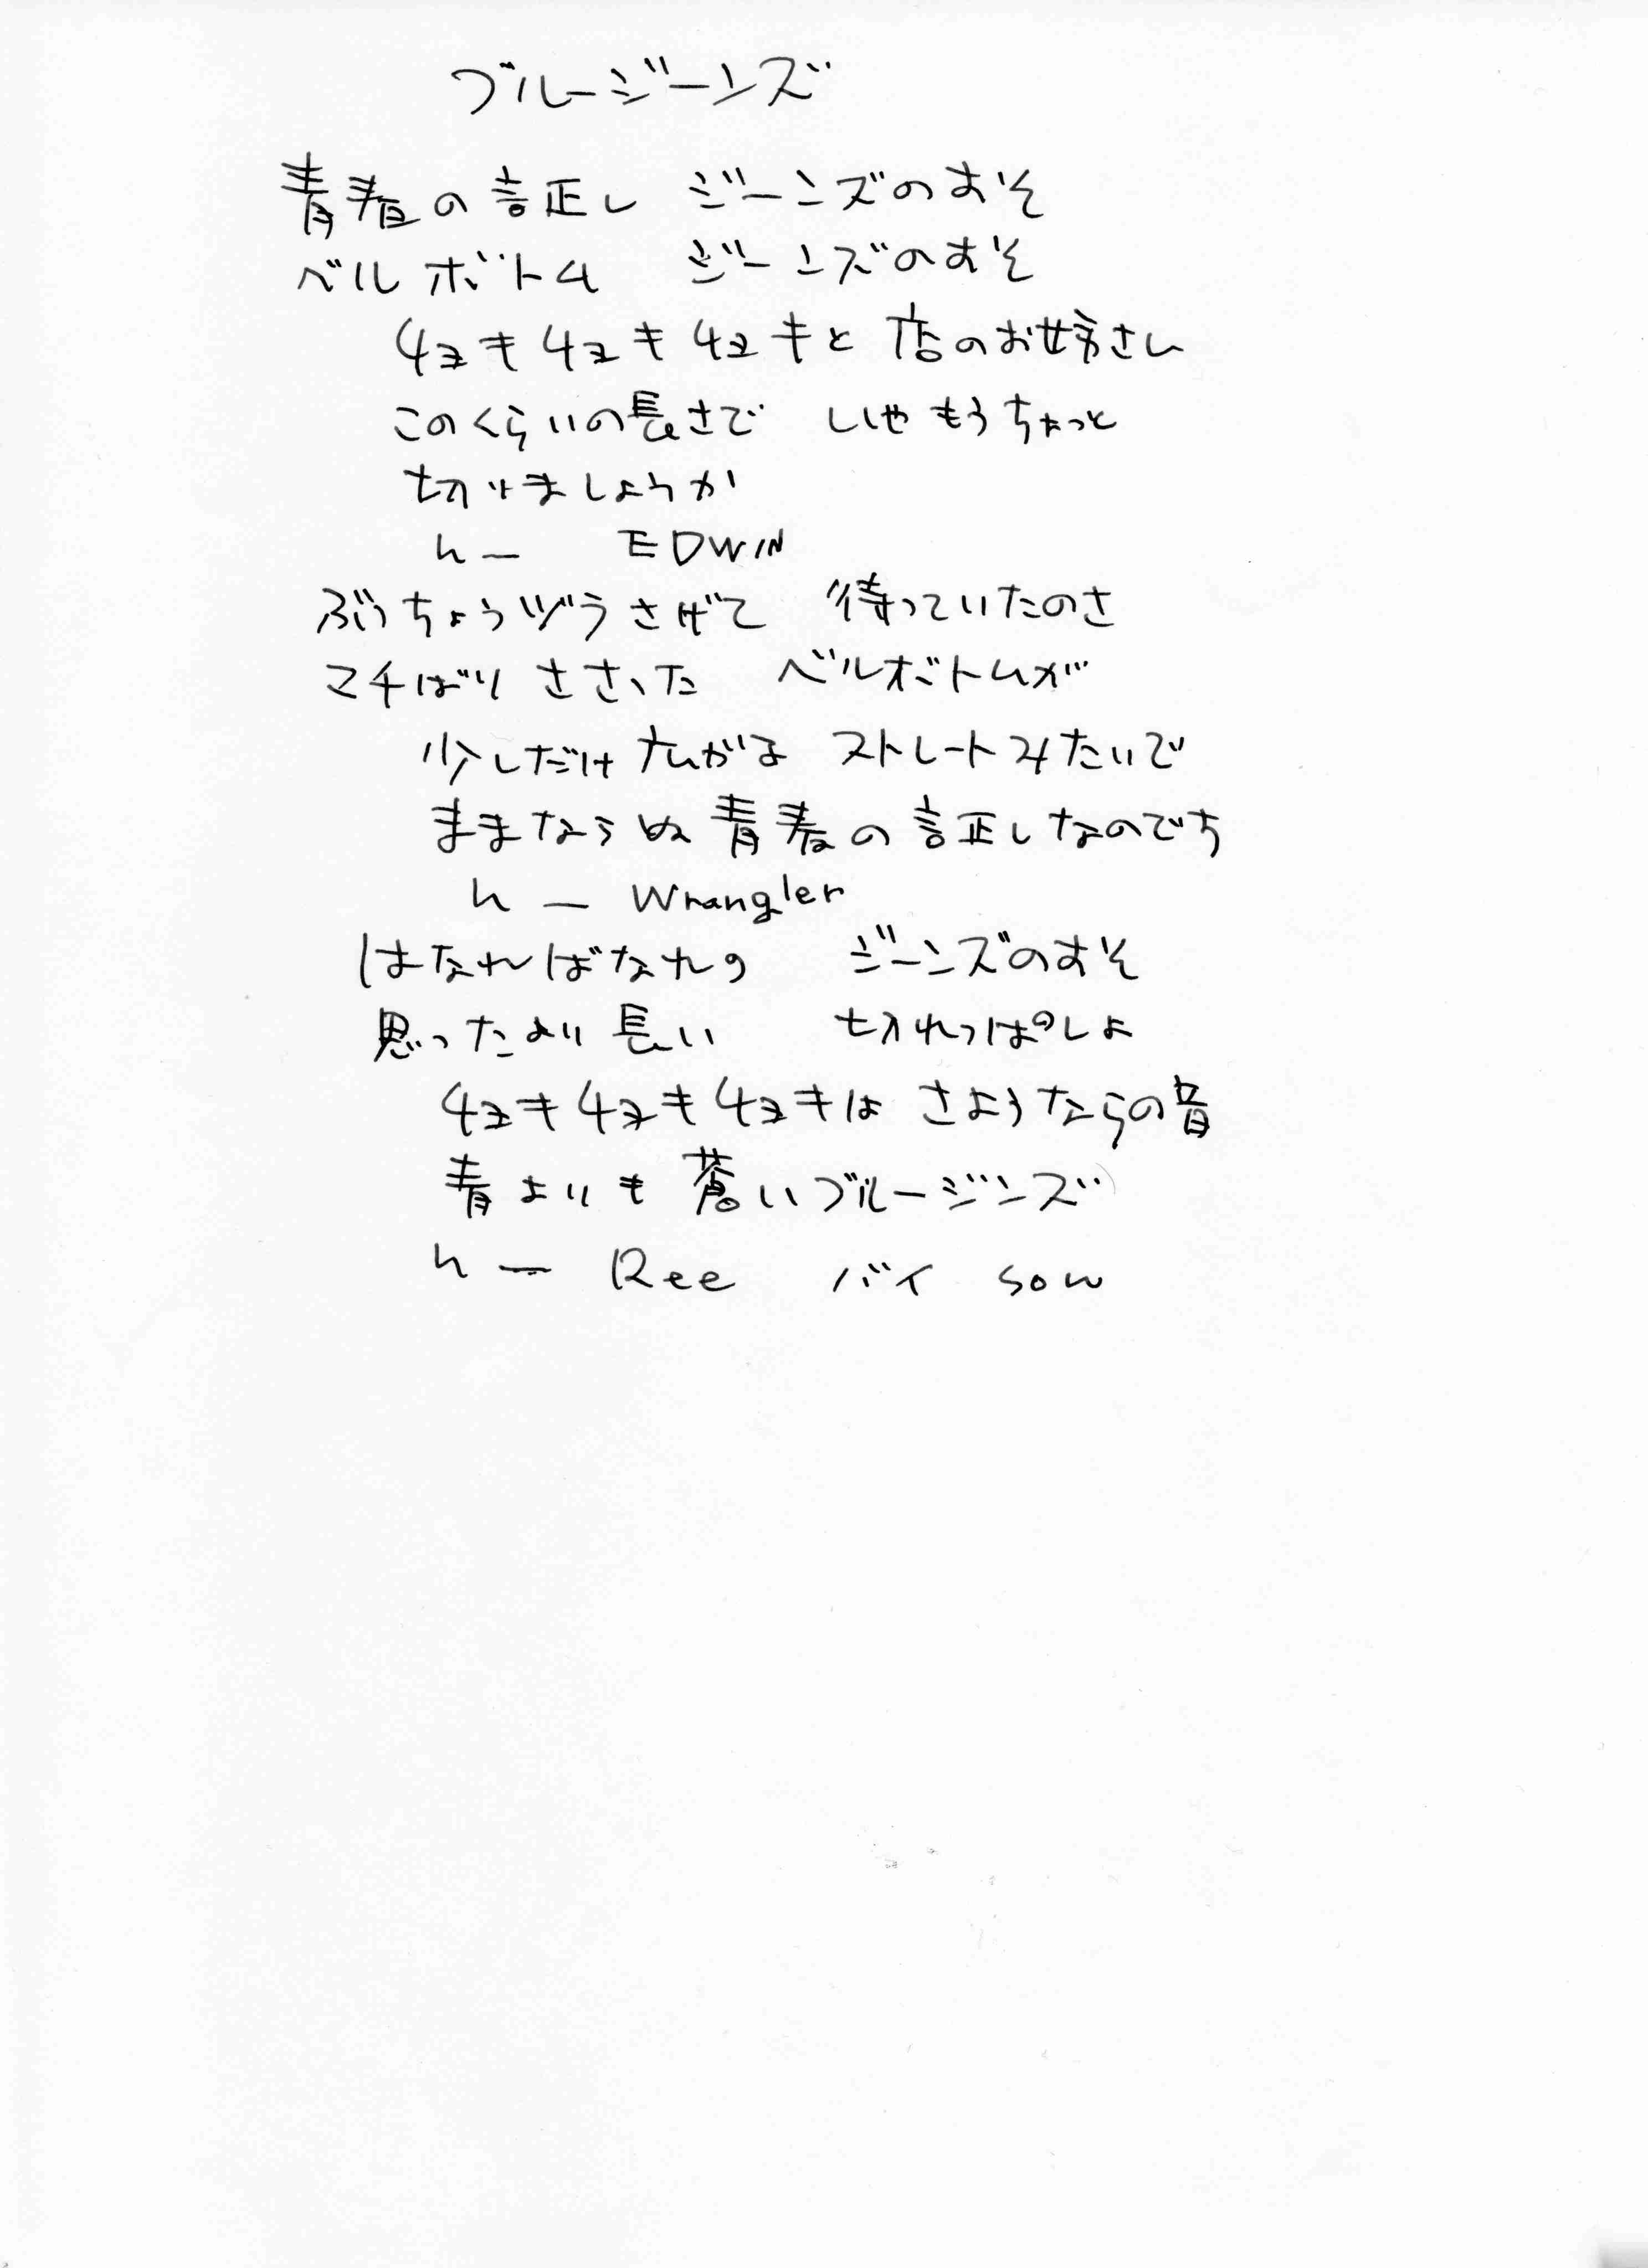 ブルージーンズ
青春の証し ジーンズのすそ
ベルボトム ジーンズのすそ
チョキチョキチョキと 店のお姉さん
このくらいの長さで いやもうちょっと
切りましょうか
h— EDWIN
ぶっちょうヅラさげて 待っていたのさ
マチばり ささった ベルボトムが
少しだけ 広がる ストレートみたいで
ままならぬ 青春の証しなのです
h— Wrangler
はなればなれの ジーンズのすそ
思ったより長い 切れっぱしよ
チョキチョキチョキは さようならの音
青よりも 蒼いブルージンズ
h— Ree バイ sow